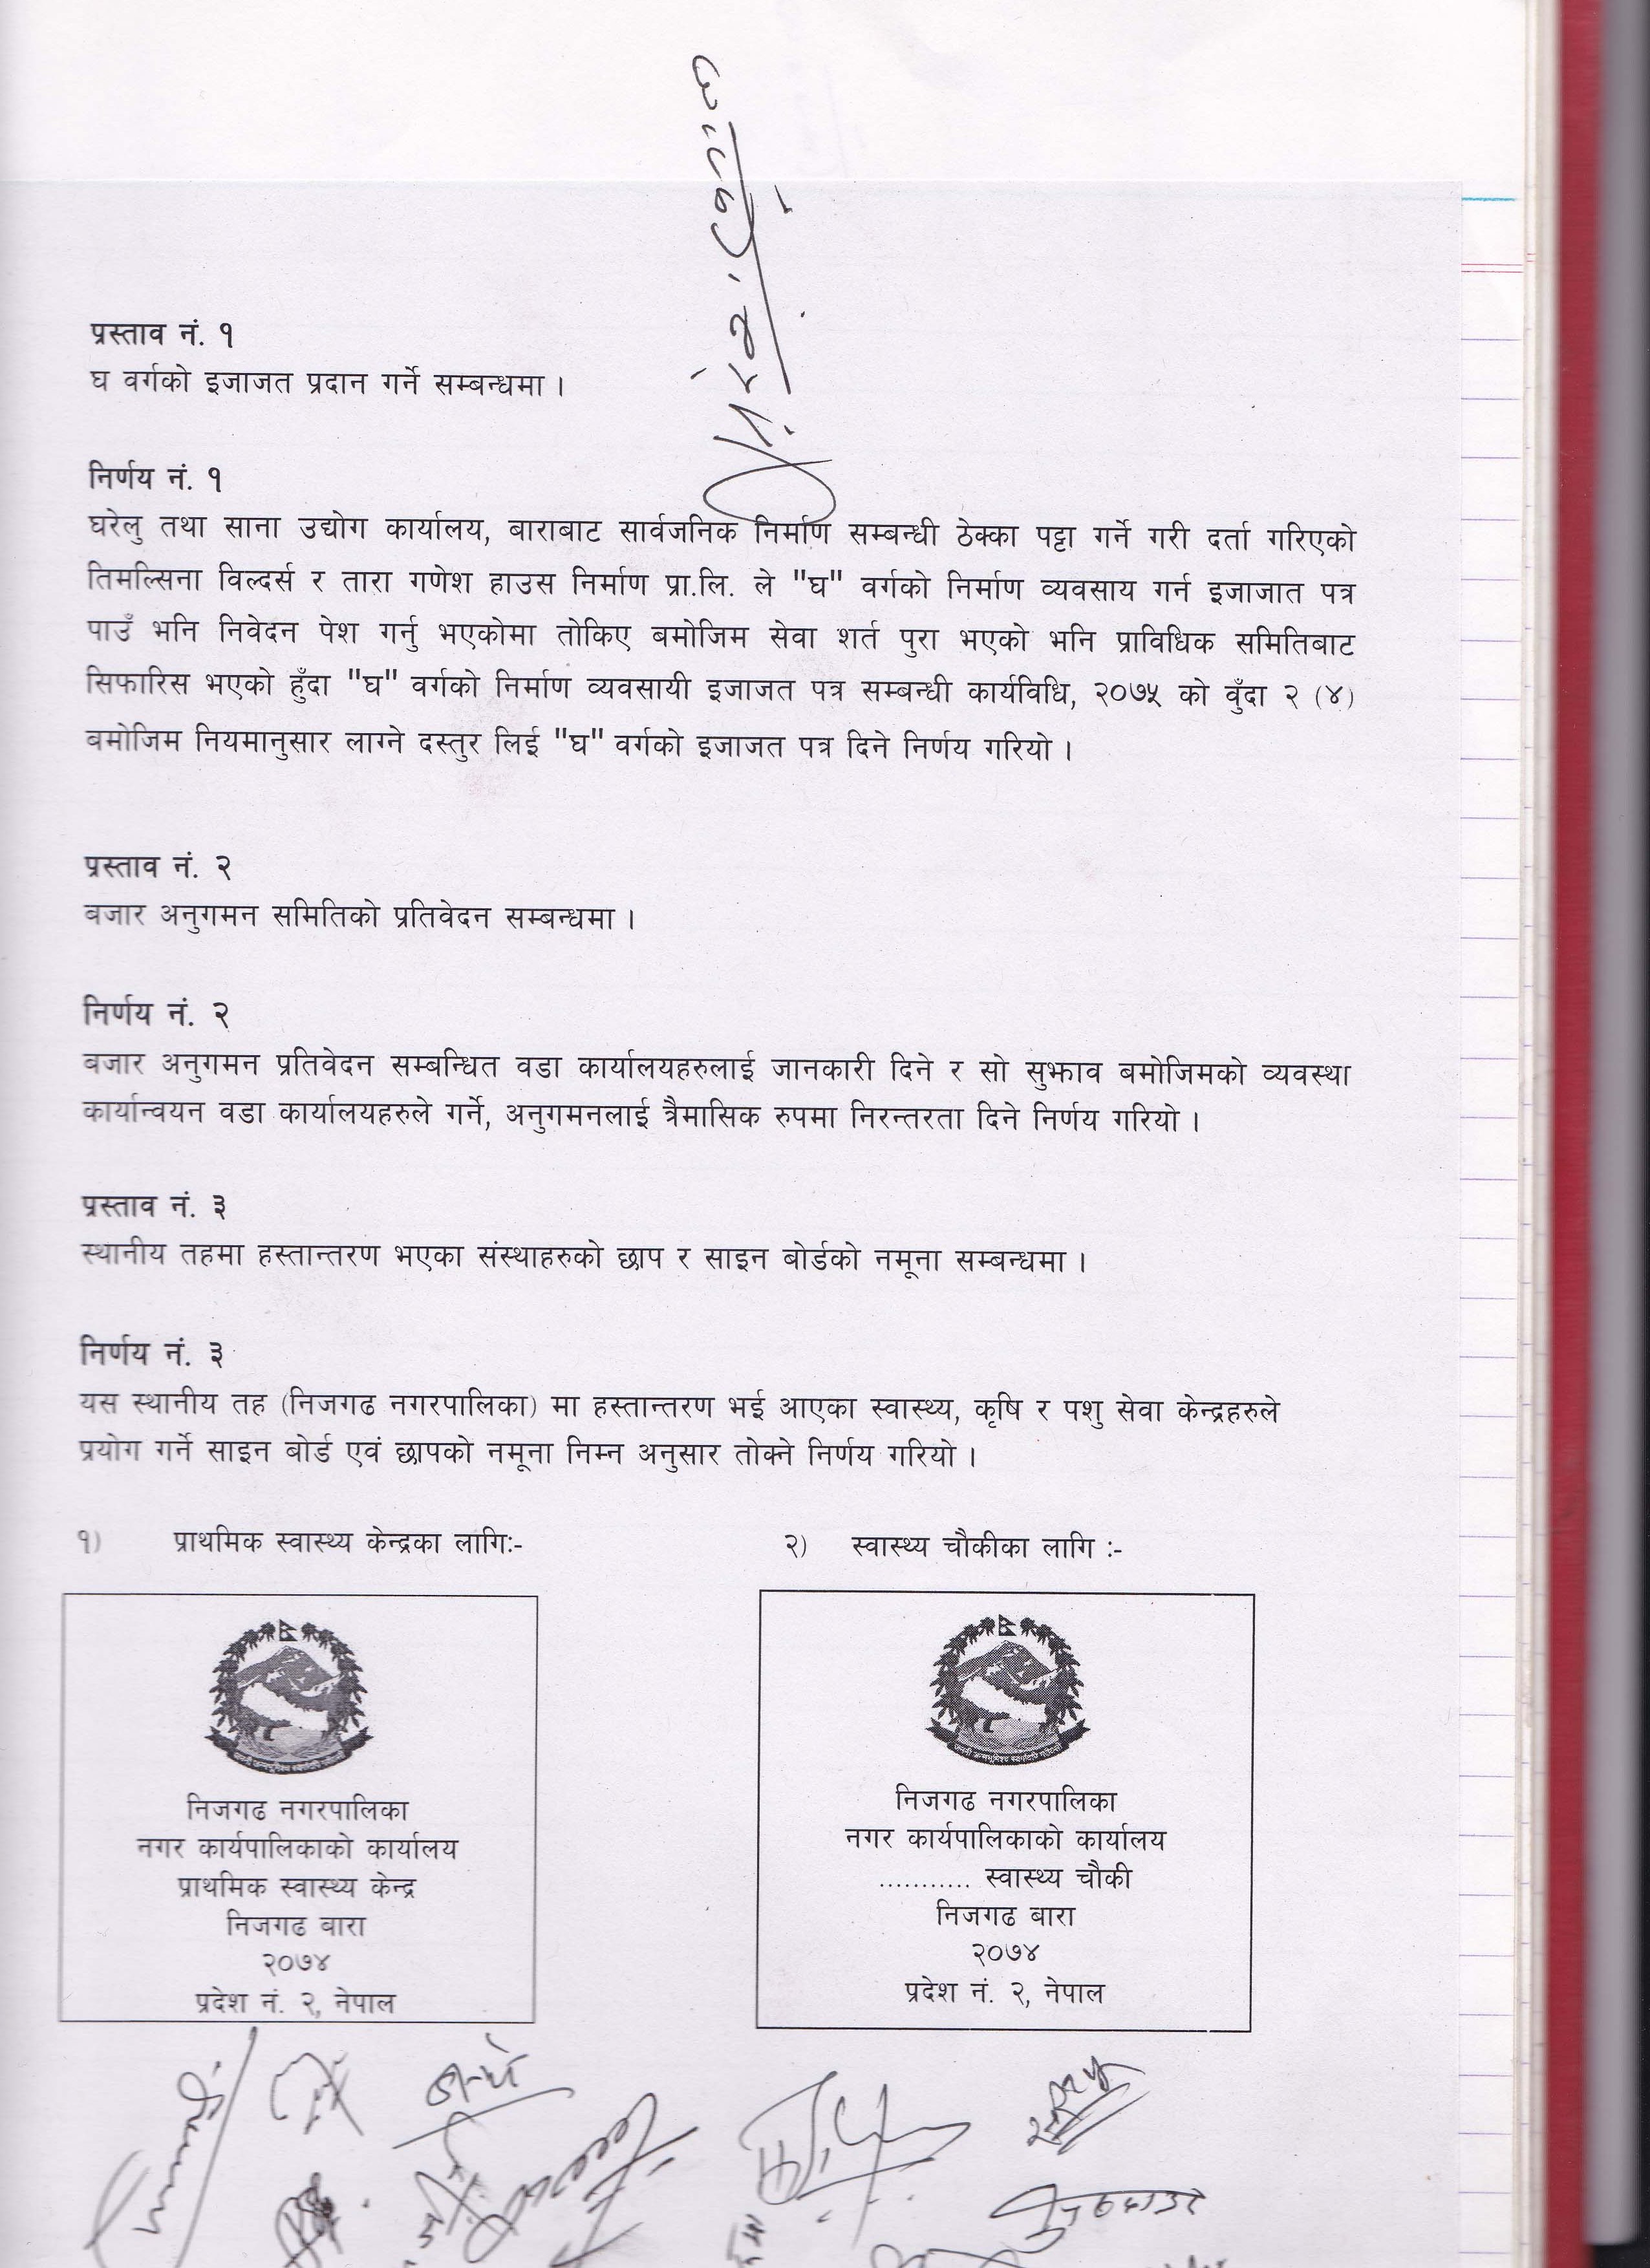 प्रस्ताव नं. १
घ वर्गको इजाजत प्रदान गर्ने सम्बन्धमा ।
निर्णय नं. १
घरेलु तथा साना उद्योग कार्यालय, बाराबाट सार्वजनिक निर्माण सम्बन्धी ठेक्का पट्टा गर्ने गरी दर्ता गरिएको
तिमल्सिना विल्दर्स र तारा गणेश हाउस निर्माण प्रा.लि. ले "घ" वर्गको निर्माण व्यवसाय गर्न इजाजात पत्र
पाउँ भनि निवेदन पेश गर्नु भएकोमा तोकिए बमोजिम सेवा शर्त पुरा भएको भनि प्राविधिक समितिबाट
सिफारिस भएको हुँदा "घ" वर्गको निर्माण व्यवसायी इजाजत पत्र सम्बन्धी कार्यविधि, २०७५ को वुँदा २ (४)
बमोजिम नियमानुसार लाग्ने दस्तुर लिई "घ" वर्गको इजाजत पत्र दिने निर्णय गरियो ।
प्रस्ताव नं. २
बजार अनुगमन समितिको प्रतिवेदन सम्बन्धमा ।
निर्णय नं. २
बजार अनुगमन प्रतिवेदन सम्बन्धित वडा कार्यालयहरुलाई जानकारी दिने र सो सुझाव बमोजिमको व्यवस्था
कार्यान्वयन वडा कार्यालयहरुले गर्ने, अनुगमनलाई त्रैमासिक रुपमा निरन्तरता दिने निर्णय गरियो ।
प्रस्ताव नं. ३
स्थानीय तहमा हस्तान्तरण भएका संस्थाहरुको छाप र साइन बोर्डको नमूना सम्बन्धमा ।
निर्णय नं. ३
यस स्थानीय तह (निजगढ नगरपालिका) मा हस्तान्तरण भई आएका स्वास्थ्य, कृषि र पशु सेवा केन्द्रहरुले
प्रयोग गर्ने साइन बोर्ड एवं छापको नमूना निम्न अनुसार तोक्ने निर्णय गरियो ।
१) प्राथमिक स्वास्थ्य केन्द्रका लागिः-
निजगढ नगरपालिका
नगर कार्यपालिकाको कार्यालय
प्राथमिक स्वास्थ्य केन्द्र
निजगढ बारा
२०७४
प्रदेश नं. २, नेपाल
२) स्वास्थ्य चौकीका लागि :-
निजगढ नगरपालिका
नगर कार्यपालिकाको कार्यालय
........... स्वास्थ्य चौकी
निजगढ बारा
२०७४
प्रदेश नं. २, नेपाल